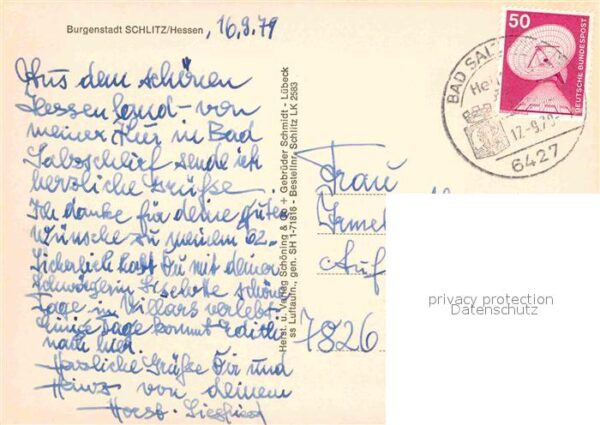 Burgenstadt SCHLITZ/Hessen, 16.9.79
Aus dem schönen
Hessenland - von
meiner Kur in Bad
Salzschlirf sende ich
herzliche Grüße.
Ich danke für deine guten
Wünsche zu meinem 62.
Sicherlich hast Du mit deiner
Schwägerin Liselotte schöne
Tage in Villars verlebt.
Einige Tage kommt Edith
nach hier.
Herzliche Grüße Dir und
Heinz von deinem
Horst-Siegfried
Herst. u. Verlag Schöning & Co + Gebrüder Schmidt - Lübeck
ss Luftaufn., gen. SH 1-71816 - Bestellnr. Schlitz LK 2563
50
DEUTSCHE BUNDESPOST
BAD
17.-9.79
6427
Frau
Auf
7826
privacy protection
Datenschutz